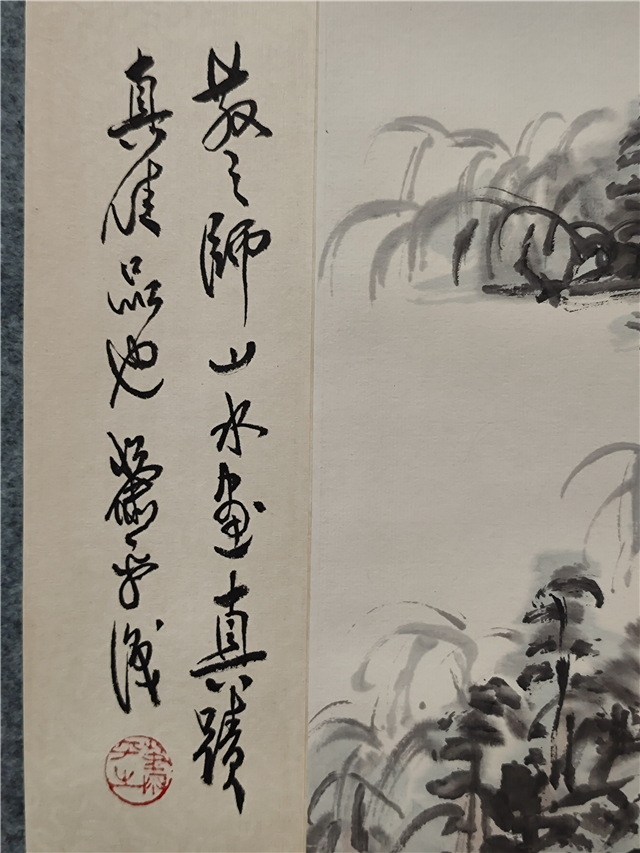 散之師山水畫真蹟
真佳品也 蕭平識